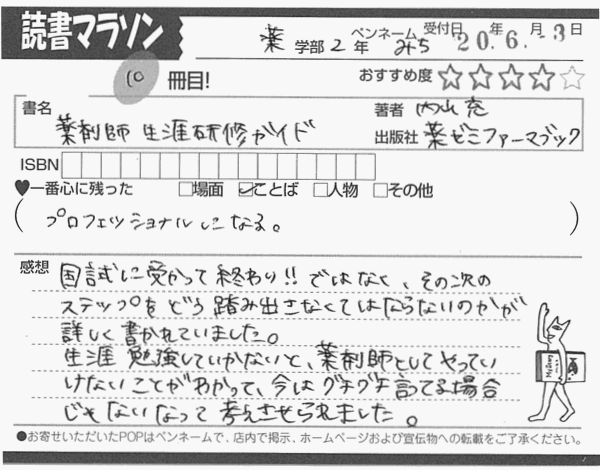 読書マラソン
薬 学部 2 年 ペンネーム みち 受付日 20.年6.月-3日
10 冊目! おすすめ度 ★★★★☆
書名 薬剤師 生涯研修ガイド
著者 内山 充
出版社 薬ゼミファーマブック
ISBN
♥一番心に残った □場面 ☑ことば □人物 □その他
(プロフェッショナルになる。)
感想 国試に受かって終わり!! ではなく、その次の
ステップをどう踏み出さなくてはならないのかが
詳しく書かれていました。
生涯 勉強していかないと、薬剤師としてやってい
けないことがわかって、今はグチグチ言ってる場合
じゃないなって考えさせられました。
●お寄せいただいたPOPはペンネームで、店内で掲示、ホームページおよび宣伝物への転載をご了承ください。